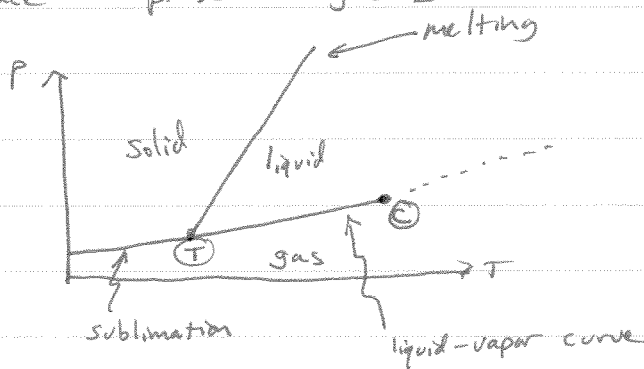 melting
P
solid
liquid
C
T
gas
T
sublimation
liquid-vapor curve